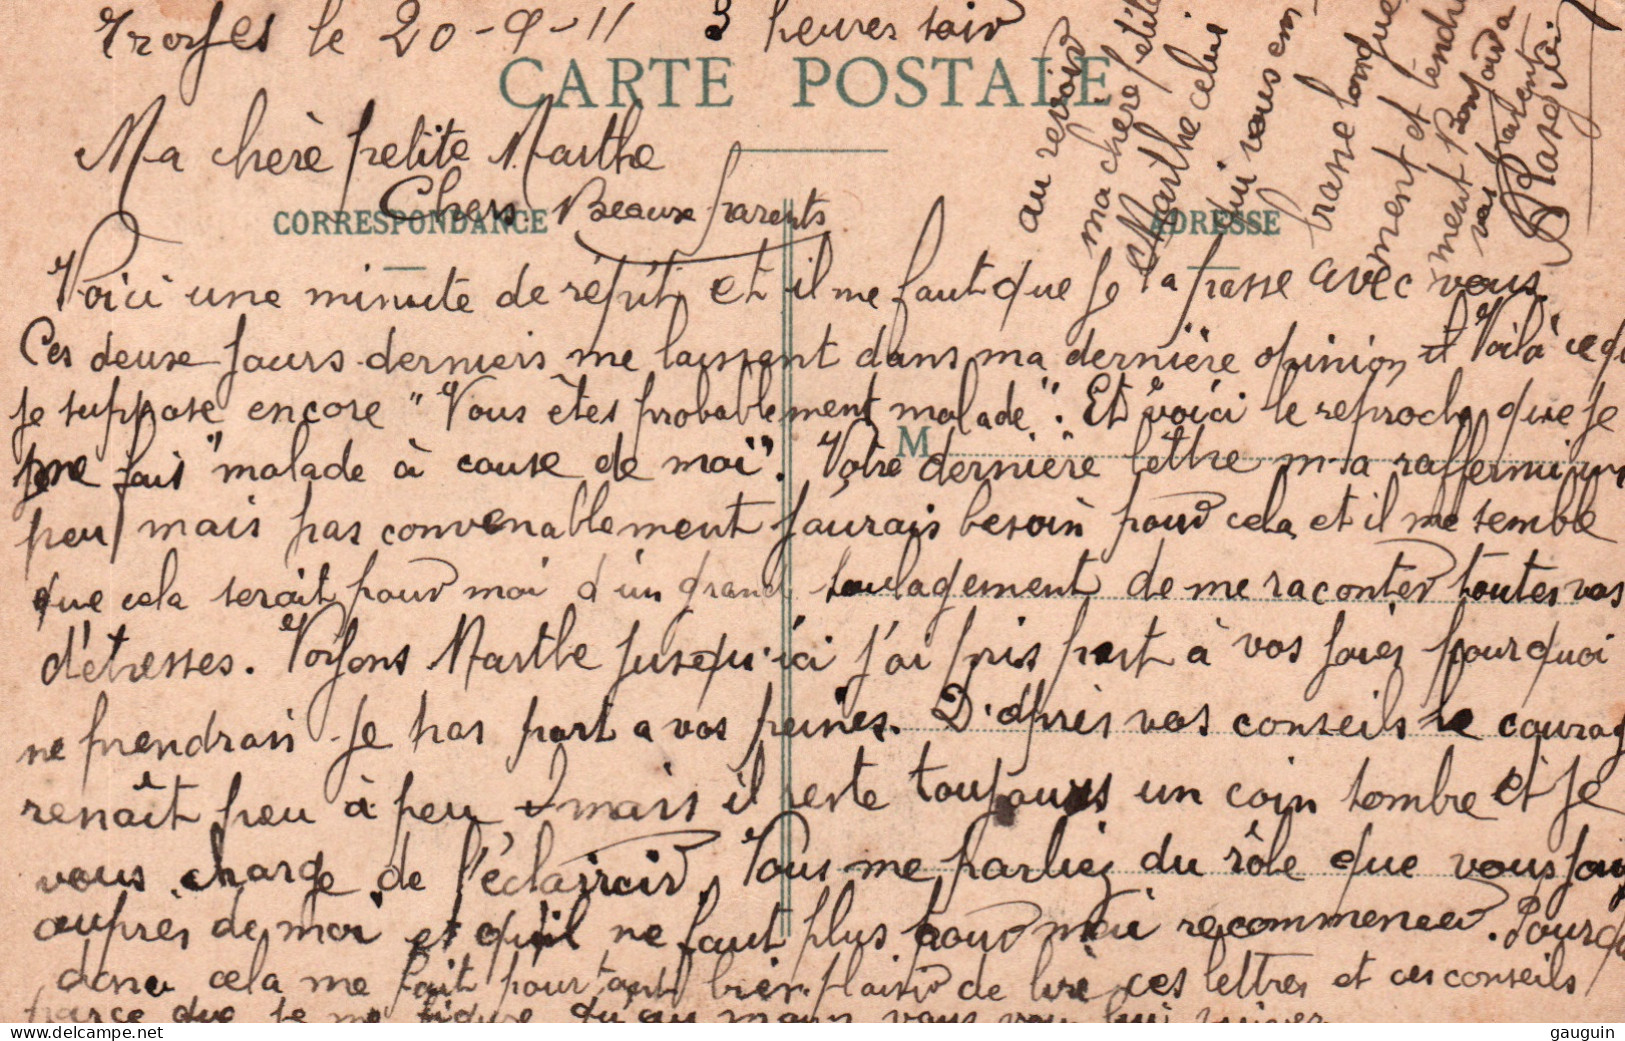 Troyes le 20-9-11 3 heures soir
CARTE POSTALE
Ma chère petite Marthe
Chers Beaux parents
CORRESPONDANCE
ADRESSE
Voici une minute de répit et il me faut que je la passe avec vous.
Ces deux jours derniers me laissent dans ma dernière opinion et "Voilà ce qu
je suppose encore "Vous êtes probablement malade". Et voici le reproche que je
M
me fais "malade à cause de moi". Votre dernière lettre m'a raffermi un
peu mais pas convenablement j'aurais besoin pour cela et il me semble
que cela serait pour moi d'un grand soulagement de me raconter toutes vos
détresses. Voyons Marthe jusqu'ici j'ai pris part à vos joies pourquoi
ne prendrais je pas part a vos peines. D'après vos conseils le courag
renaît peu à peu mais il reste toujours un coin sombre et je
vous charge de l'éclaircir. Vous me parliez du rôle que vous joui
auprès de moi et qu'il ne faut plus pour moi recommencer. Pourqu
donc cela me fait pourtant bien plaisir de lire ces lettres et ces conseils
parce que je me figure qu'au moins vous
au revoir
ma chère petite
Marthe celui
qui vous em-
brasse longue
ment et tendre
ment Bonjour a
vos parents
gauguin